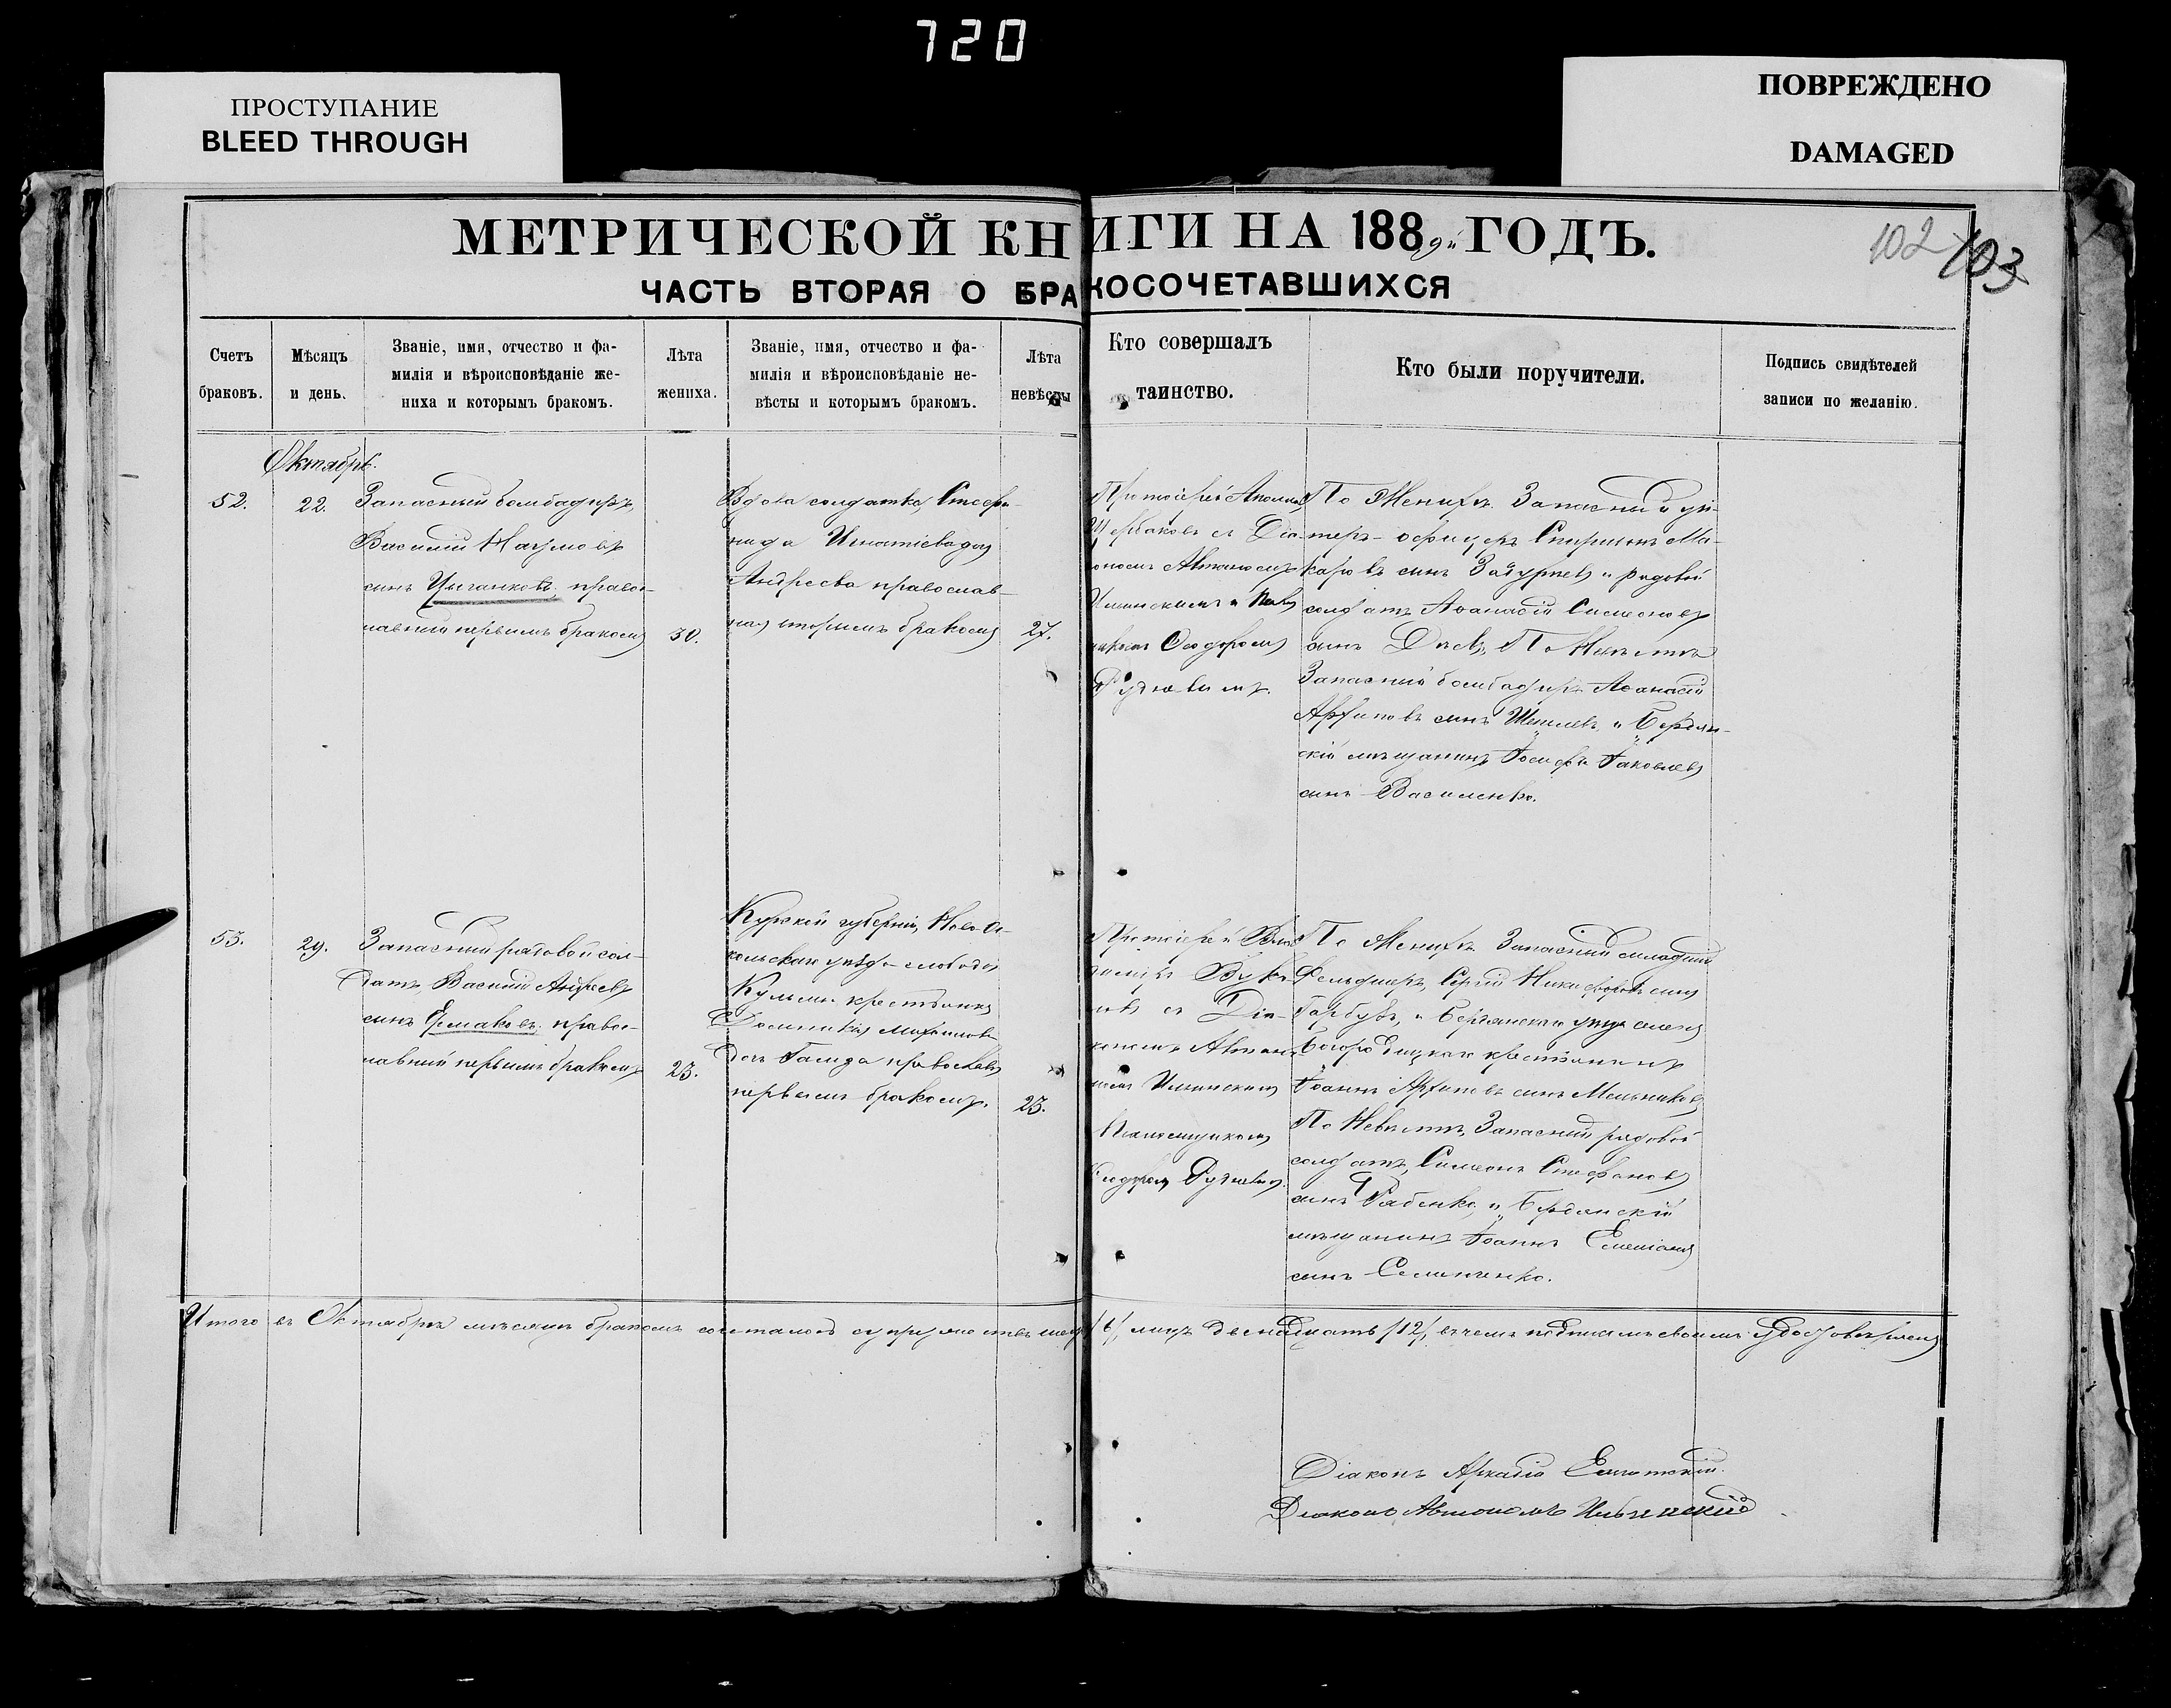 720
ПРОСТУПАНИЕ
BLEED THROUGH
ПОВРЕЖДЕНО
DAMAGED
МЕТРИЧЕСКОЙ КНИГИ НА 1889й ГОДЪ.
102 103
ЧАСТЬ ВТОРАЯ О БРАКОСОЧЕТАВШИХСЯ
Счетъ
браковъ.
Мѣсяцъ
и день.
Званіе, имя, отчество и фа-
милія и вѣроисповѣданіе же-
ниха и которымъ бракомъ.
Лѣта
жениха.
Званіе, имя, отчество и фа-
милія и вѣроисповѣданіе не-
вѣсты и которымъ бракомъ.
Лѣта
невѣсты
Кто совершалъ
таинство.
Кто были поручители.
Подпись свидѣтелей
записи по желанію.
Октябрь.
52.
22.
Запасный бомбадиръ,
Василій Наумовъ
сынъ Цыганковъ, правос-
лавный первымъ бракомъ
30.
Вдова солдатка,
Игнатіева доч
Андреева православ-
ная вторымъ бракомъ
27.
Протоіерей
Щербаковъ съ Діа-
кономъ Автономомъ
Ильинскимъ и
Ѳеодоромъ
Рудневымъ.
По Женихѣ Запасный ун-
теръ-офицеръ Спиридонъ Ма-
каровъ сынъ и рядовой
солдатъ Аѳанасій Симеоновъ
сынъ По Невѣстѣ
Запасный бомбадиръ Аѳанасій
Архиповъ сынъ и Бердян-
скій мѣщанинъ Іосифъ Іаковлевъ
сынъ Василенко.
53.
29.
Запасный рядовой сол-
датъ, Василій Андреевъ
сынъ Ермаковъ, правос-
лавный первымъ бракомъ
23.
Курской губерніи, Ново-Ос-
кольскаго уѣзда слободы
крестьянка
Домникія Михаилова
доч православ
первымъ бракомъ.
23.
Протоіерей
съ Діа-
кономъ Автоно-
момъ Ильинскимъ
Ѳеодоромъ Рудневымъ.
По Женихѣ Запасный младшій
Фельдшеръ, Сергій Никифоровъ сынъ
Гарбузъ, и Бердянскаго уѣзда
крестьянинъ
Іоаннъ Архиповъ сынъ Мельниковъ
По Невѣстѣ, Запасный рядовой
солдатъ, Симеонъ Стефановъ
сынъ Рабенко, и Бердянскій
мѣщанинъ Іоаннъ
сынъ
Итого въ Октябрѣ мѣсяцѣ бракомъ сочеталось супружествъ шесть /6/, лицъ двенадцать /12/, въ чемъ подписомъ своимъ удостовѣряемъ
Діаконъ
Діаконъ Автономъ Ильинскій